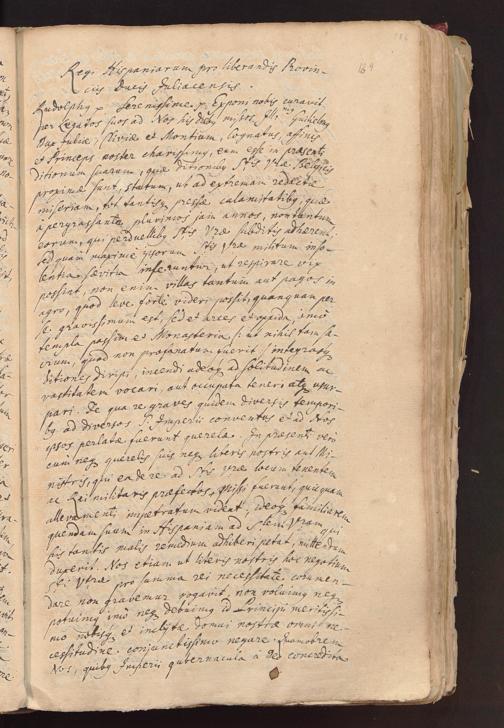 169
Regi Hispaniarum pro liberandis Provin-
cijs Ducis Juliacensis.
Rudolphus p. Serenissime p. Exponi nobis curavit
per Legatos suos ad Nos his dieb9 missos, Guilielmus
Dux Juliæ, Cliviæ et Montium, Cognatus, affinis
et Princeps noster charissimus, eum esse in præsenti
ditionum suarum, quæ ditionib9 Stis Vræ Belgicis
proximæ sunt, statum, ut ad extremam redactæ
miseriam, tot tantisq pressæ calamitatib9, quæ
plurimos jam annos, non tantum
eorum, qui perduellib9 Stis Vræ subditis adherent,
sed quam maxime ipsorum Stis Vræ militum inso-
lentia sævitia inferuntur, ut respirare vix
possint, non enim villas tantum aut pagos in
agro, quod leve forte videri possit, quanquam per
se gravissimum est, sed et arces et oppida, imo
templa passim et Monasteria (: ut nihil tam sa-
crum, quod non profanatum fuerit :) integrasq
ditiones diripi, incendi adeoq ad solitudinem ac
vastitatem vocari, aut occupata teneri atq usur-
pari. De qua re graves quidem diversis tempori-
b9 ad diversos S. Imperij conventus et ad Nos
ipsos perlatæ fuerunt querelæ. In præsenti vero
cum neq querelis suis neq literis nostris aut Mi-
nistris, qui eade re ad Stis Vræ locum tenentem
ac Rei militaris præfectos, missi fuerunt, quicquam
allevamenti impetratum videat, ideoq familiarem
quendam suum in Hispaniam ad Stem Vram qui
his tantis malis remedium adhiberi petat, mittendum
duxerit. Nos etiam ut literis nostris hoc negotium
Sti Vræ pro summa rei necessitate commen-
dare non gravemur rogavit, non voluimus neq
potuimus imo neq debuimus id Principi meritissi-
mo nobisq et inclytæ domui nostræ omni ne-
cessitudine conjunctissimo negare. Quamobrem
Nos, quib9 Imperij gubernacula a Deo concredita